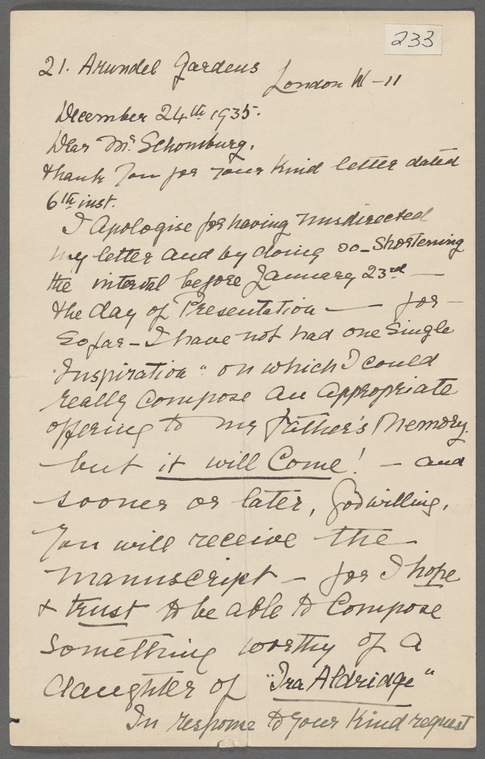 233
21. Arundel Gardens
London W-11
December 24th 1935.
Dear Mr Schomburg.
thank you for your kind letter dated
6th inst.
I apologise for having misdirected
my letter and by doing so - shortening
the interval before January 23rd —
the day of Presentation — for -
So far - I have not had one single
"Inspiration" on which I could
really compose an appropriate
offering to my Father's Memory.
but it will Come! - and
sooner or later, God willing,
you will receive the
manuscript - for I hope
& trust to be able to compose
something worthy of a
daughter of "Ira Aldridge"
In response to your kind request